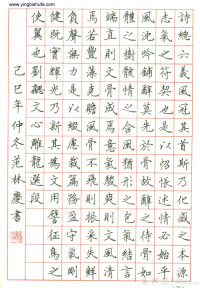 詩總六義風冠其首斯乃化感之本源
志氣之符契也是以怊悵述情必始乎
風沈吟鋪辭莫先於骨故辭之待骨如
體之樹骸情之含風猶形之包氣結言
端直則文骨成焉意氣駿爽則文風清
焉若豐藻克贍風骨不飛則振采失鮮
負聲無力是以綴慮裁篇務盈守氣剛
健既實輝光乃新其為文用譬征鳥之
使翼也 劉勰文心雕龍選段
己巳年仲冬范林慶書
www.yingbishufa.com